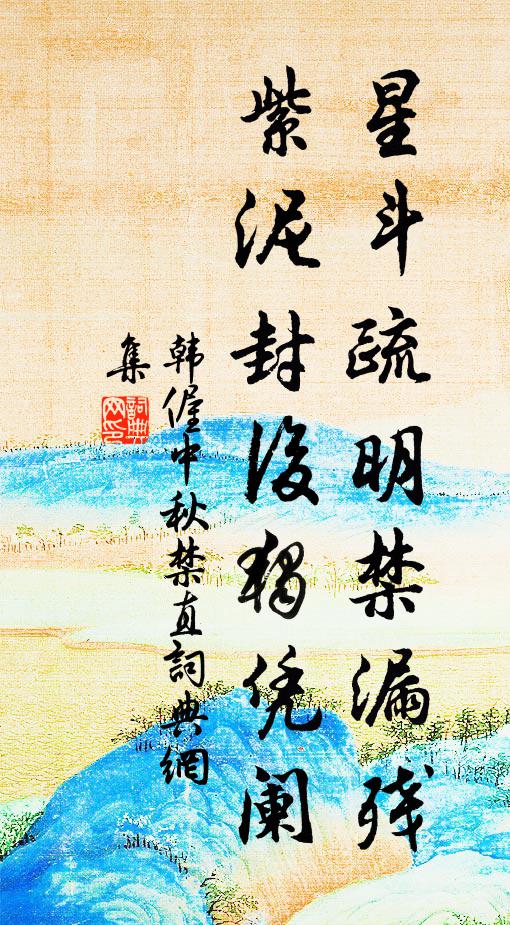 星斗疏明禁漏残
紫泥封后独凭阑
韩偓中秋禁直詞典網
集
詞典网印